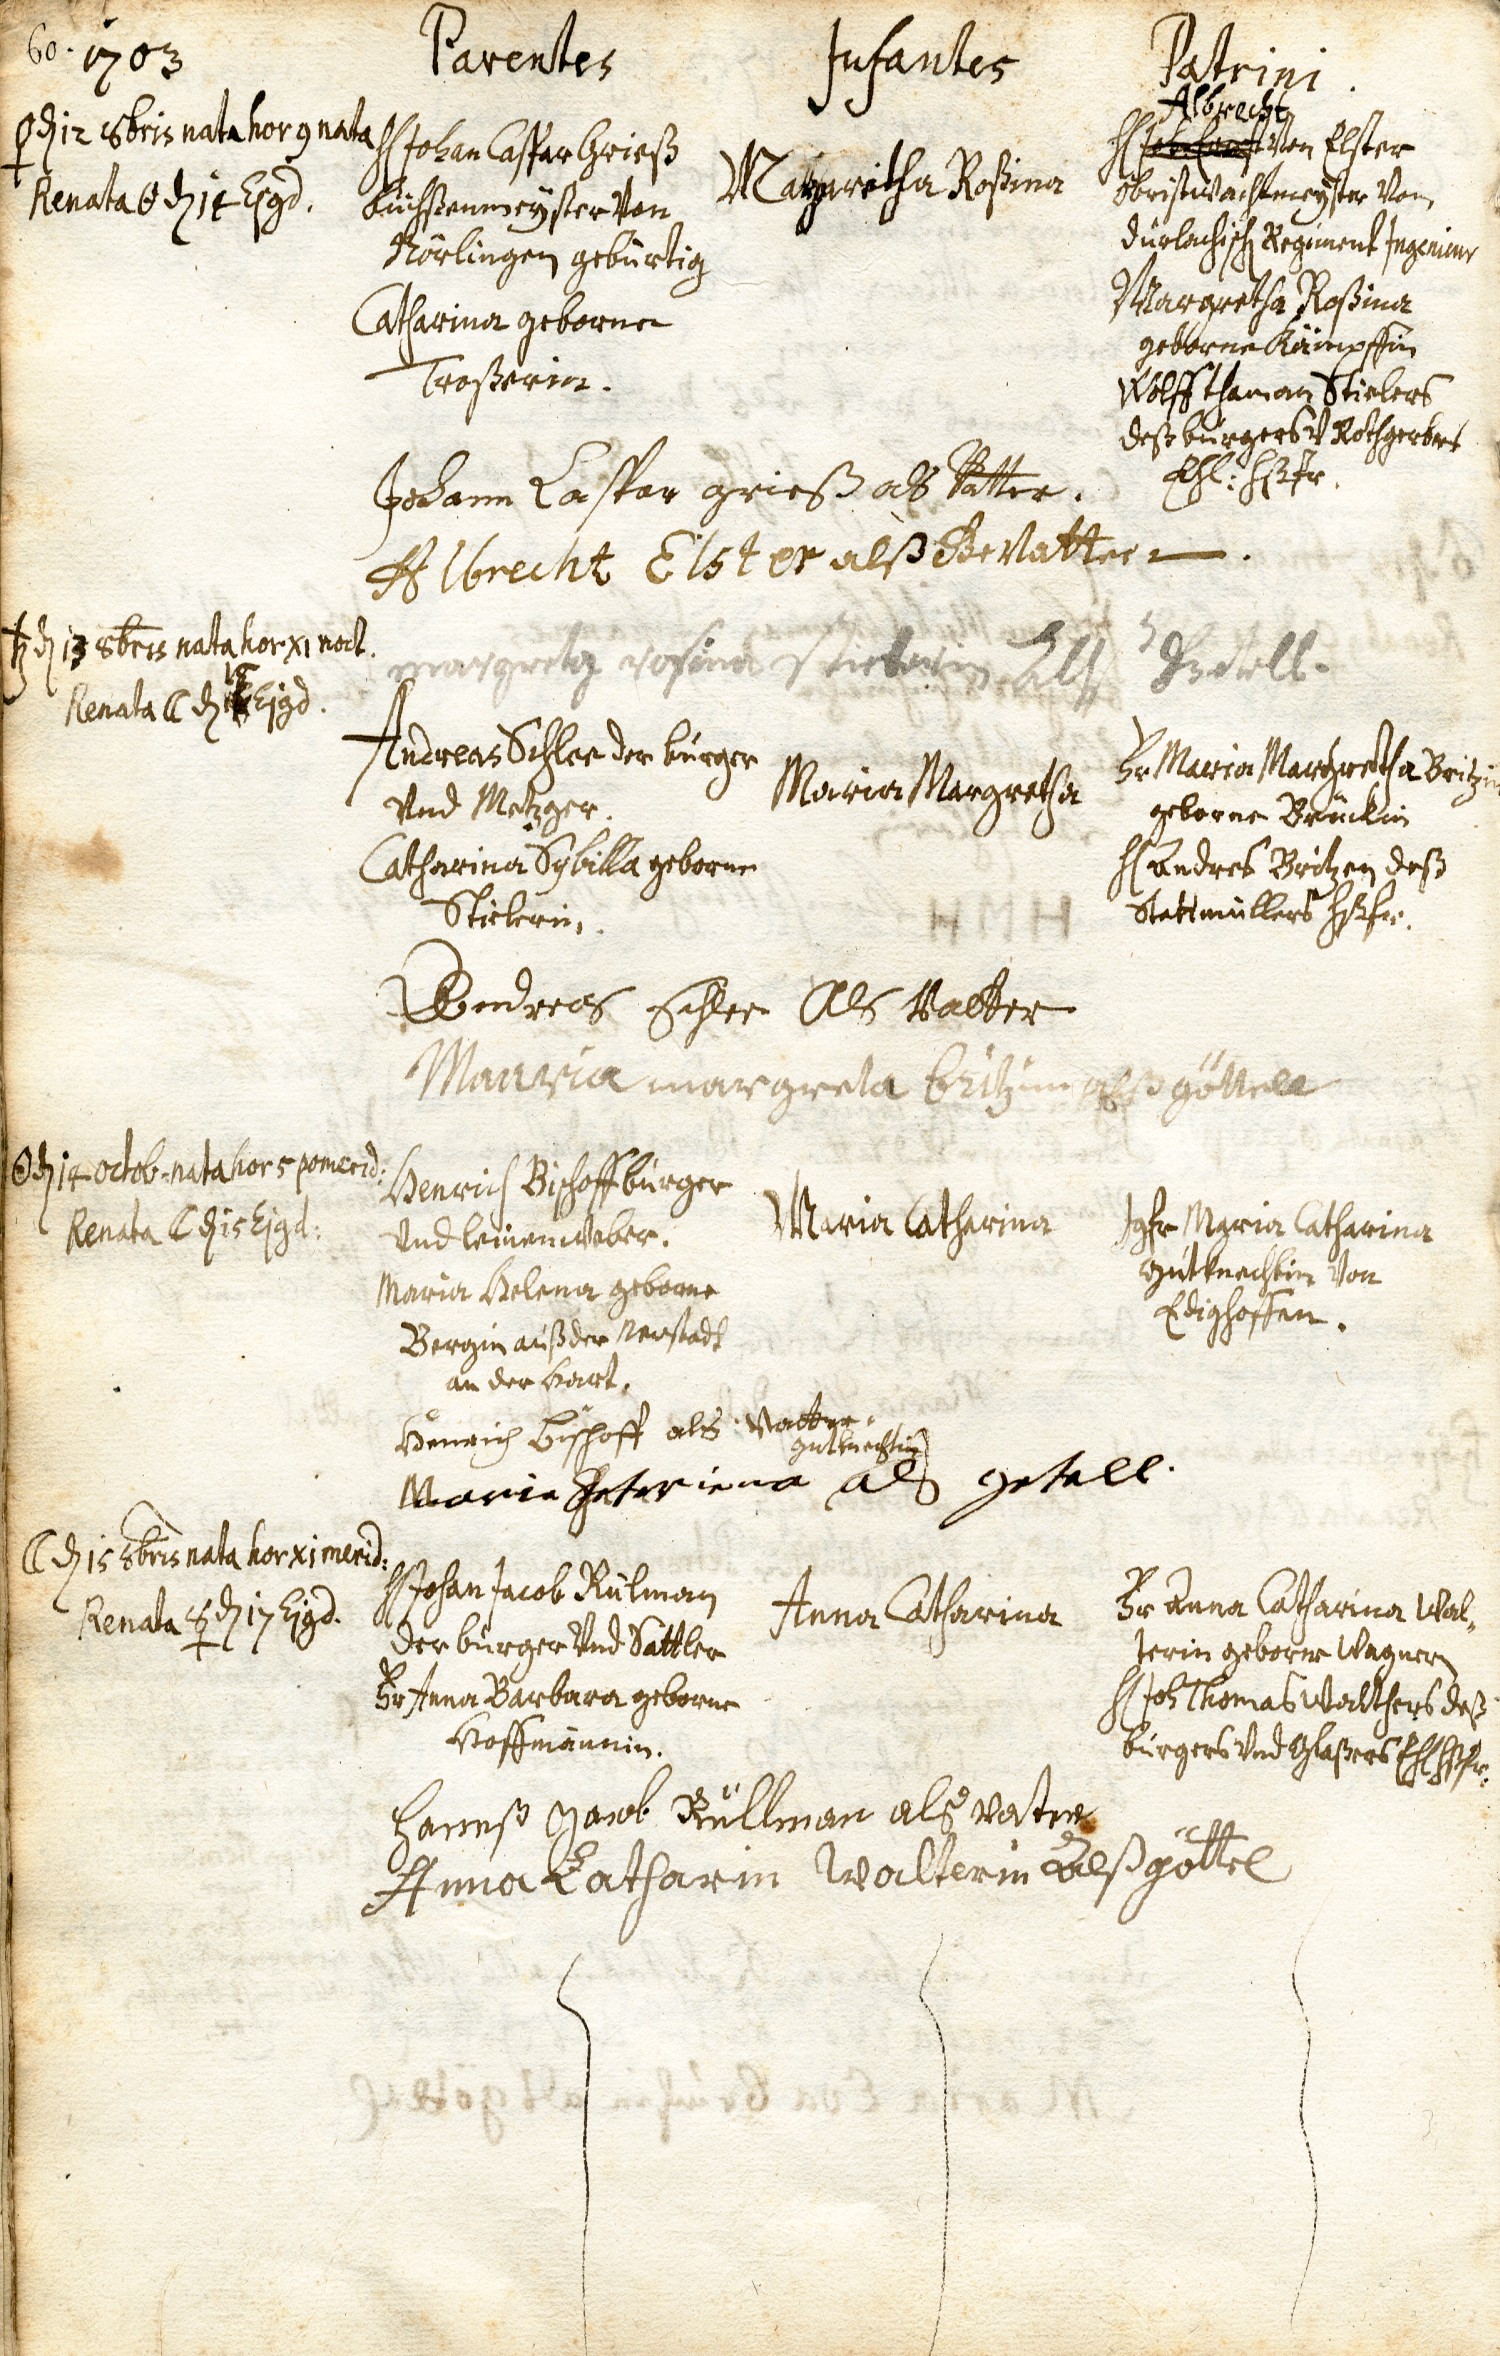 60. 1703
Parentes
Infantes
Patrini
♀ d 12 8bris nata hor 9 nata
Renata ☉ d 14 Ejgd.
H Johan Caspar Grieß
büchsenmeyster von
Nörlingen gebürtig
Catharina geborne
Troßerin.
Margaretha Roßina
Albrecht
H von Elster
obristwachtmeyster vom
durlachisch Regiment Ingenieur
Margretha Roßina
geborne Kämpffin
Wolff thaman Stielers
deß burgers v Rothgerbers
Ehl: hßfr.
Johann Caspar grieß als Vatter.
Albrecht Elster alß Gevatter
♄ d 13 8bris nata hor XI noct.
Renata ☾ d 15 Ejgd.
margreta rosina stielerin Als Gettell.
Andreas Schlee der burger
und Metzger.
Catharina Sybilla geborne
Stielerin.
Maria Margretha
Fr Maria Margretha Britzin
geborne Brückin
H Andres Britzen deß
Stattmüllers hßfr.
Andreas Schlee Als Vatter
Maarria margreta britzin alß göttell
☉ d 14 octob. nata hor 5 pomerid:
Renata ☾ d 15 Ejgd:
Henrich Bischoff burger
und leinenweber.
Maria Helena geborne
Bergin auß der Neustadt
an der hart.
Maria Catharina
Jgfr Maria Catharina
gutknechtin von
Edighoffen.
Henrich Bischoff als Vatter.
gutknechtin
Maria Kateriena als getell.
☾ d 15 8bris nata hor XI merid:
Renata ☿ d 17 Ejgd.
H Johan Jacob Rülman
der burger und Sattler
Fr Anna Barbara geborne
Hoffmännin.
Anna Catharina
Fr Anna Catharina Wal-
terin geborne Wagnern
H Joh Thomas Walthers deß
burgers und Glaßers Ehl hßfr.
Hannß Jacob Rüllman als vatter
Anna Catharin Walterin alß göttel